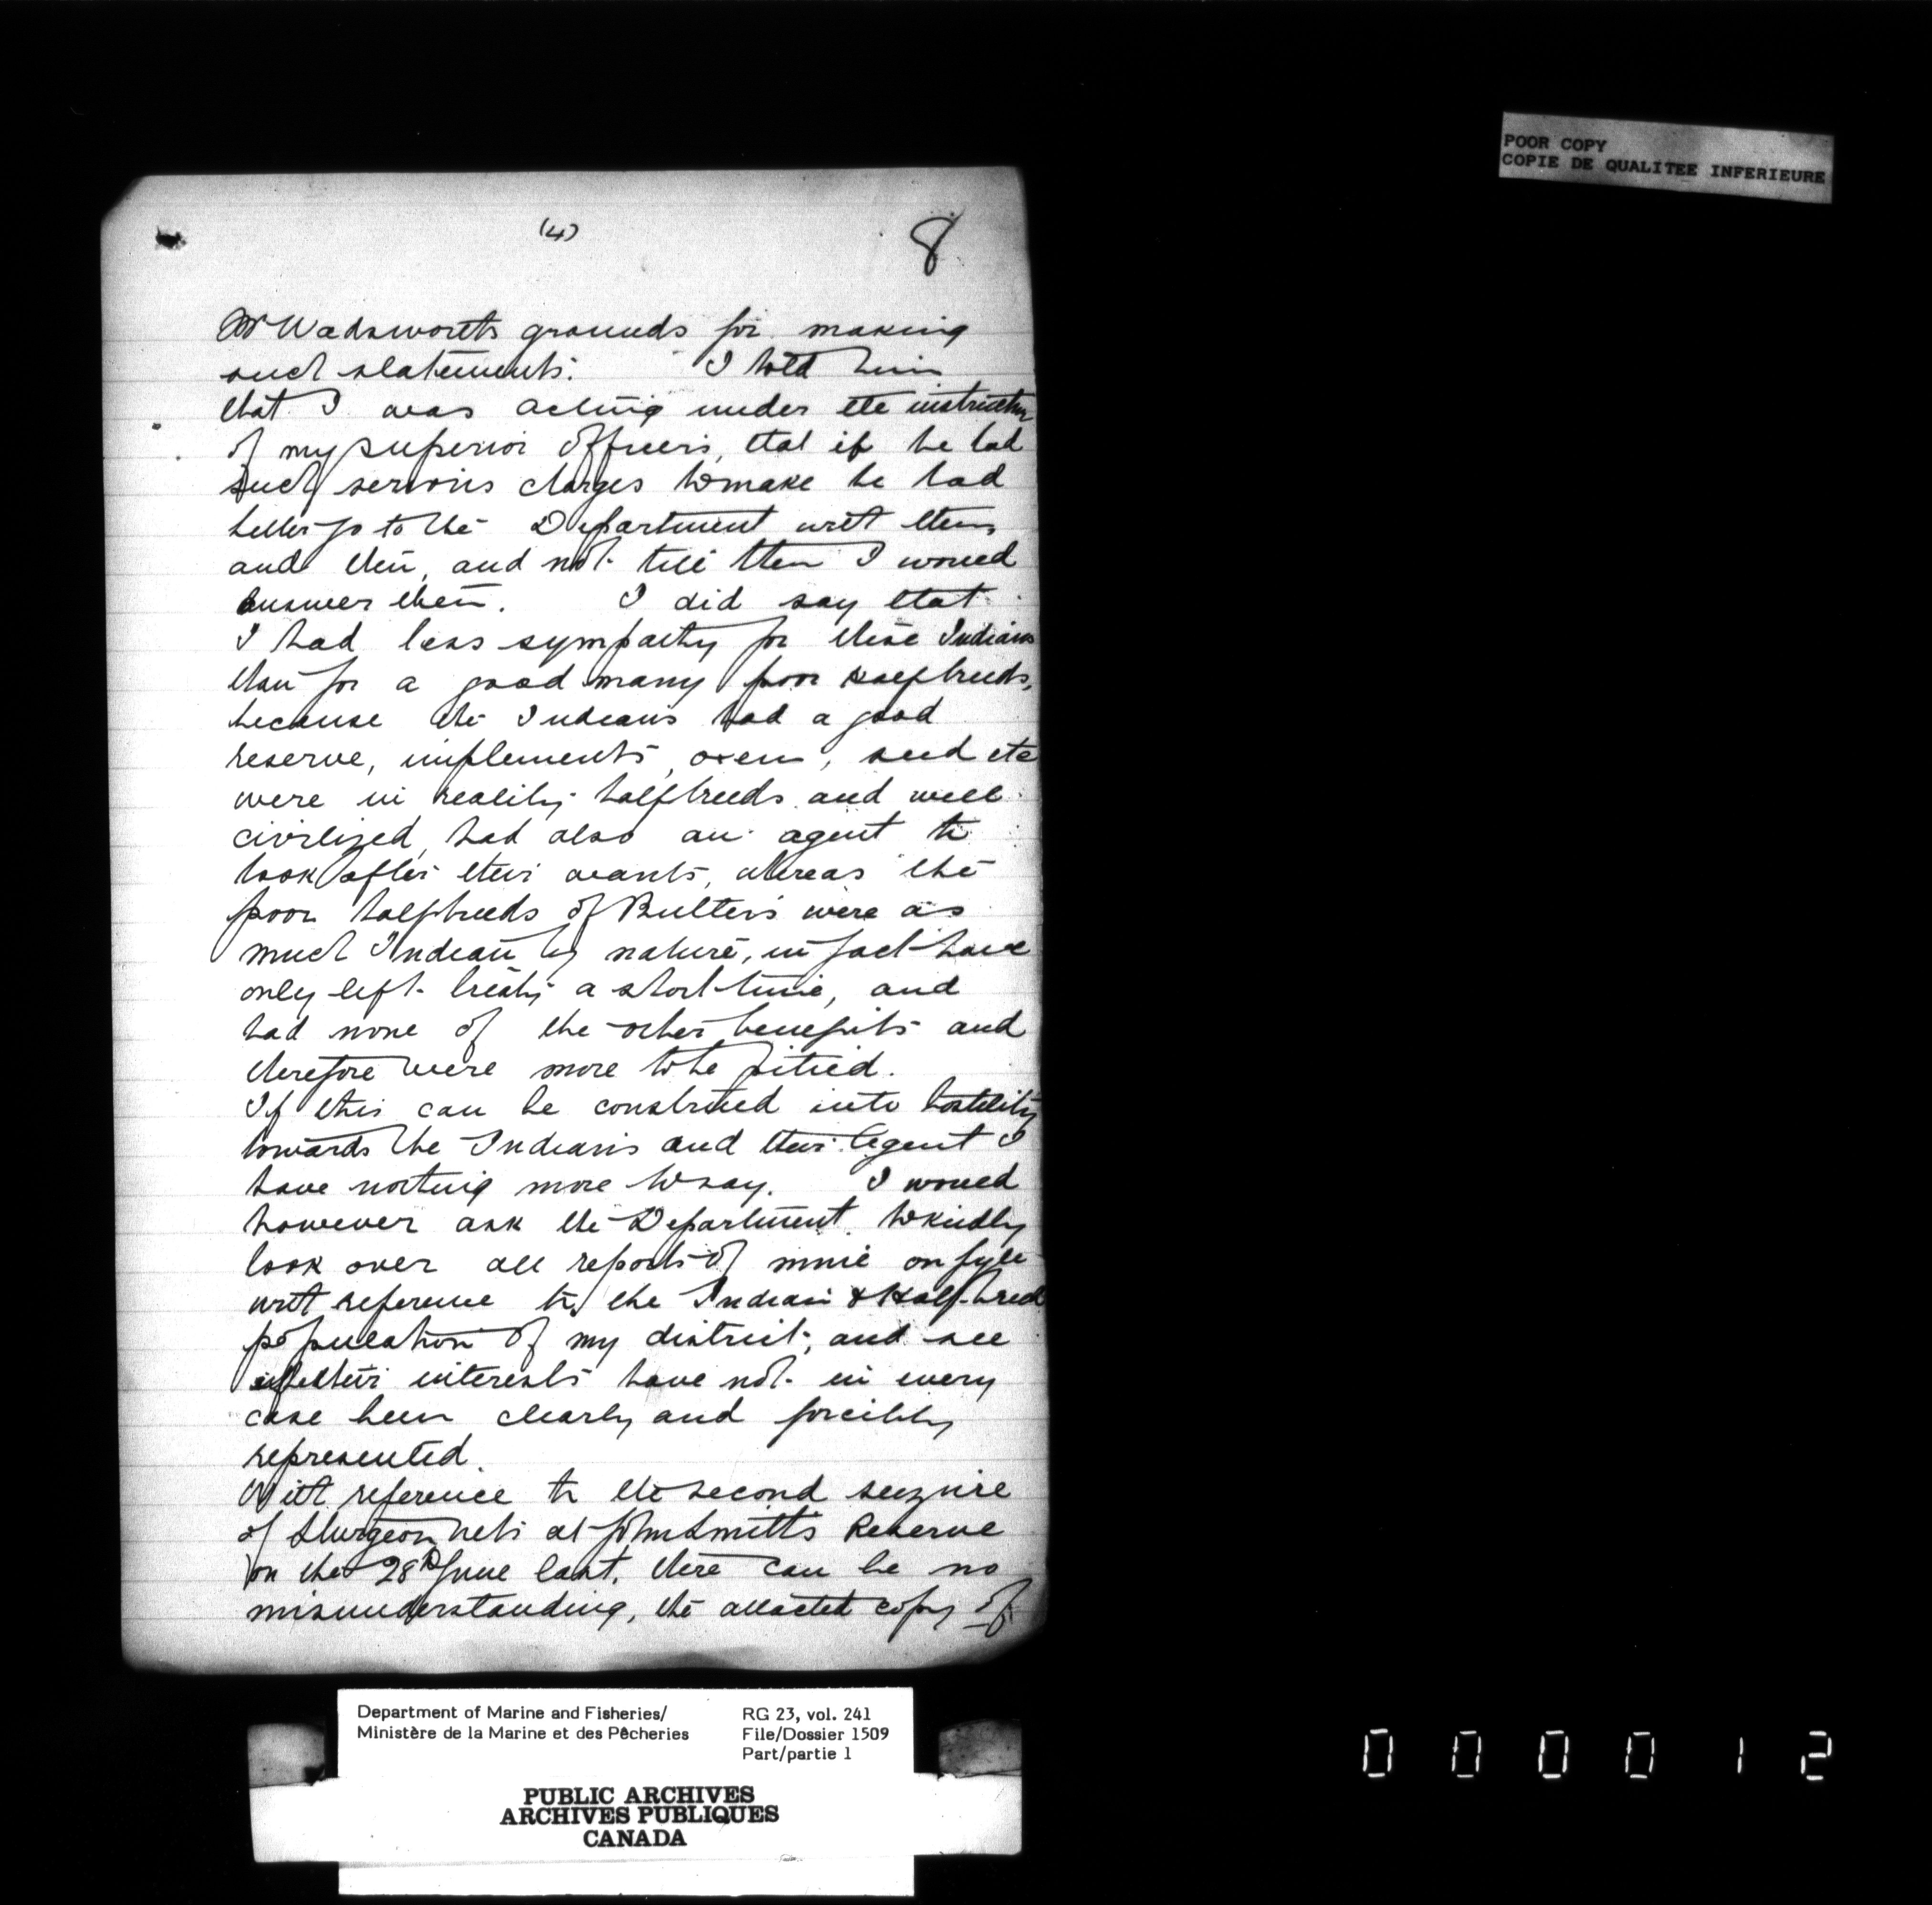 POOR COPY
COPIE DE QUALITEE INFERIEURE
(4)
8
Mr Wadsworth's grounds for making
such statements. I told him
that I was acting under the instruction
of my superior officers, that if he had
such serious charges to make he had
better go to the Department with them
and then, and not till then I would
answer them. I did say that
I had less sympathy for these Indians
than for a good many poor Halfbreeds,
because the Indians had a good
reserve, implements, oxen, seed etc
were in reality halfbreeds and well
civilized, had also an agent to
look after their wants, whereas the
poor halfbreeds of Butlers were as
much Indian by nature, in fact have
only left treaty a short time, and
had none of the other benefits and
therefore were more to be pitied.
If this can be construed into hostility
towards the Indians and their Agent I
have nothing more to say. I would
however ask the Department to kindly
look over all reports of mine on fyle
with reference to the Indian & Half-breed
population of my district, and see
if their interests have not in every
case been clearly and forcibly
represented.
With reference to the second seizure
of Sturgeon nets at John Smith's Reserve
on the 28th June last, there can be no
misunderstanding, the attached copy of
Department of Marine and Fisheries/
Ministère de la Marine et des Pêcheries
RG 23, vol. 241
File/Dossier 1509
Part/partie 1
PUBLIC ARCHIVES
ARCHIVES PUBLIQUES
CANADA
0 0 0 0 1 2